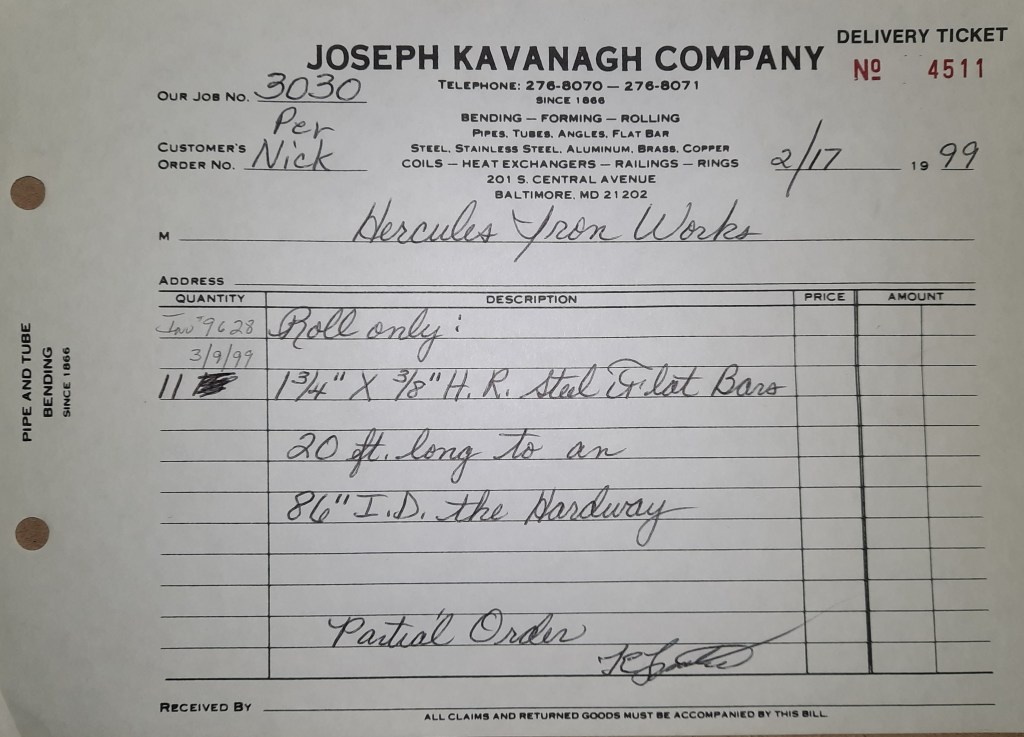 DELIVERY TICKET
JOSEPH KAVANAGH COMPANY
Nº 4511
OUR JOB NO. 3030
TELEPHONE: 276-8070 — 276-8071
SINCE 1866
BENDING — FORMING — ROLLING
PIPES, TUBES, ANGLES, FLAT BAR
CUSTOMER'S
ORDER NO. Per Nick
STEEL, STAINLESS STEEL, ALUMINUM, BRASS, COPPER
COILS — HEAT EXCHANGERS — RAILINGS — RINGS
2/17 19 99
201 S. CENTRAL AVENUE
BALTIMORE, MD 21202
M Hercules Iron Works
ADDRESS
QUANTITY DESCRIPTION PRICE AMOUNT
Inv # 9628 Roll only:
3/9/99
11 1 3/4" X 3/8" H. R. Steel Flat Bars
20 ft. long to an
86" I.D. the Hardway
Partial Order
RECEIVED BY
ALL CLAIMS AND RETURNED GOODS MUST BE ACCOMPANIED BY THIS BILL
PIPE AND TUBE
BENDING
SINCE 1866